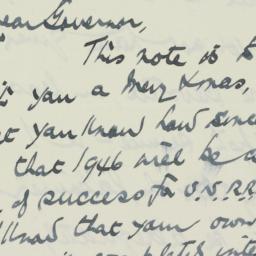 Dear Governor,
This note is t
you a Merry Xmas,
t you know how since
that 1946 will be a
of success for U.N.R.R
know that your own